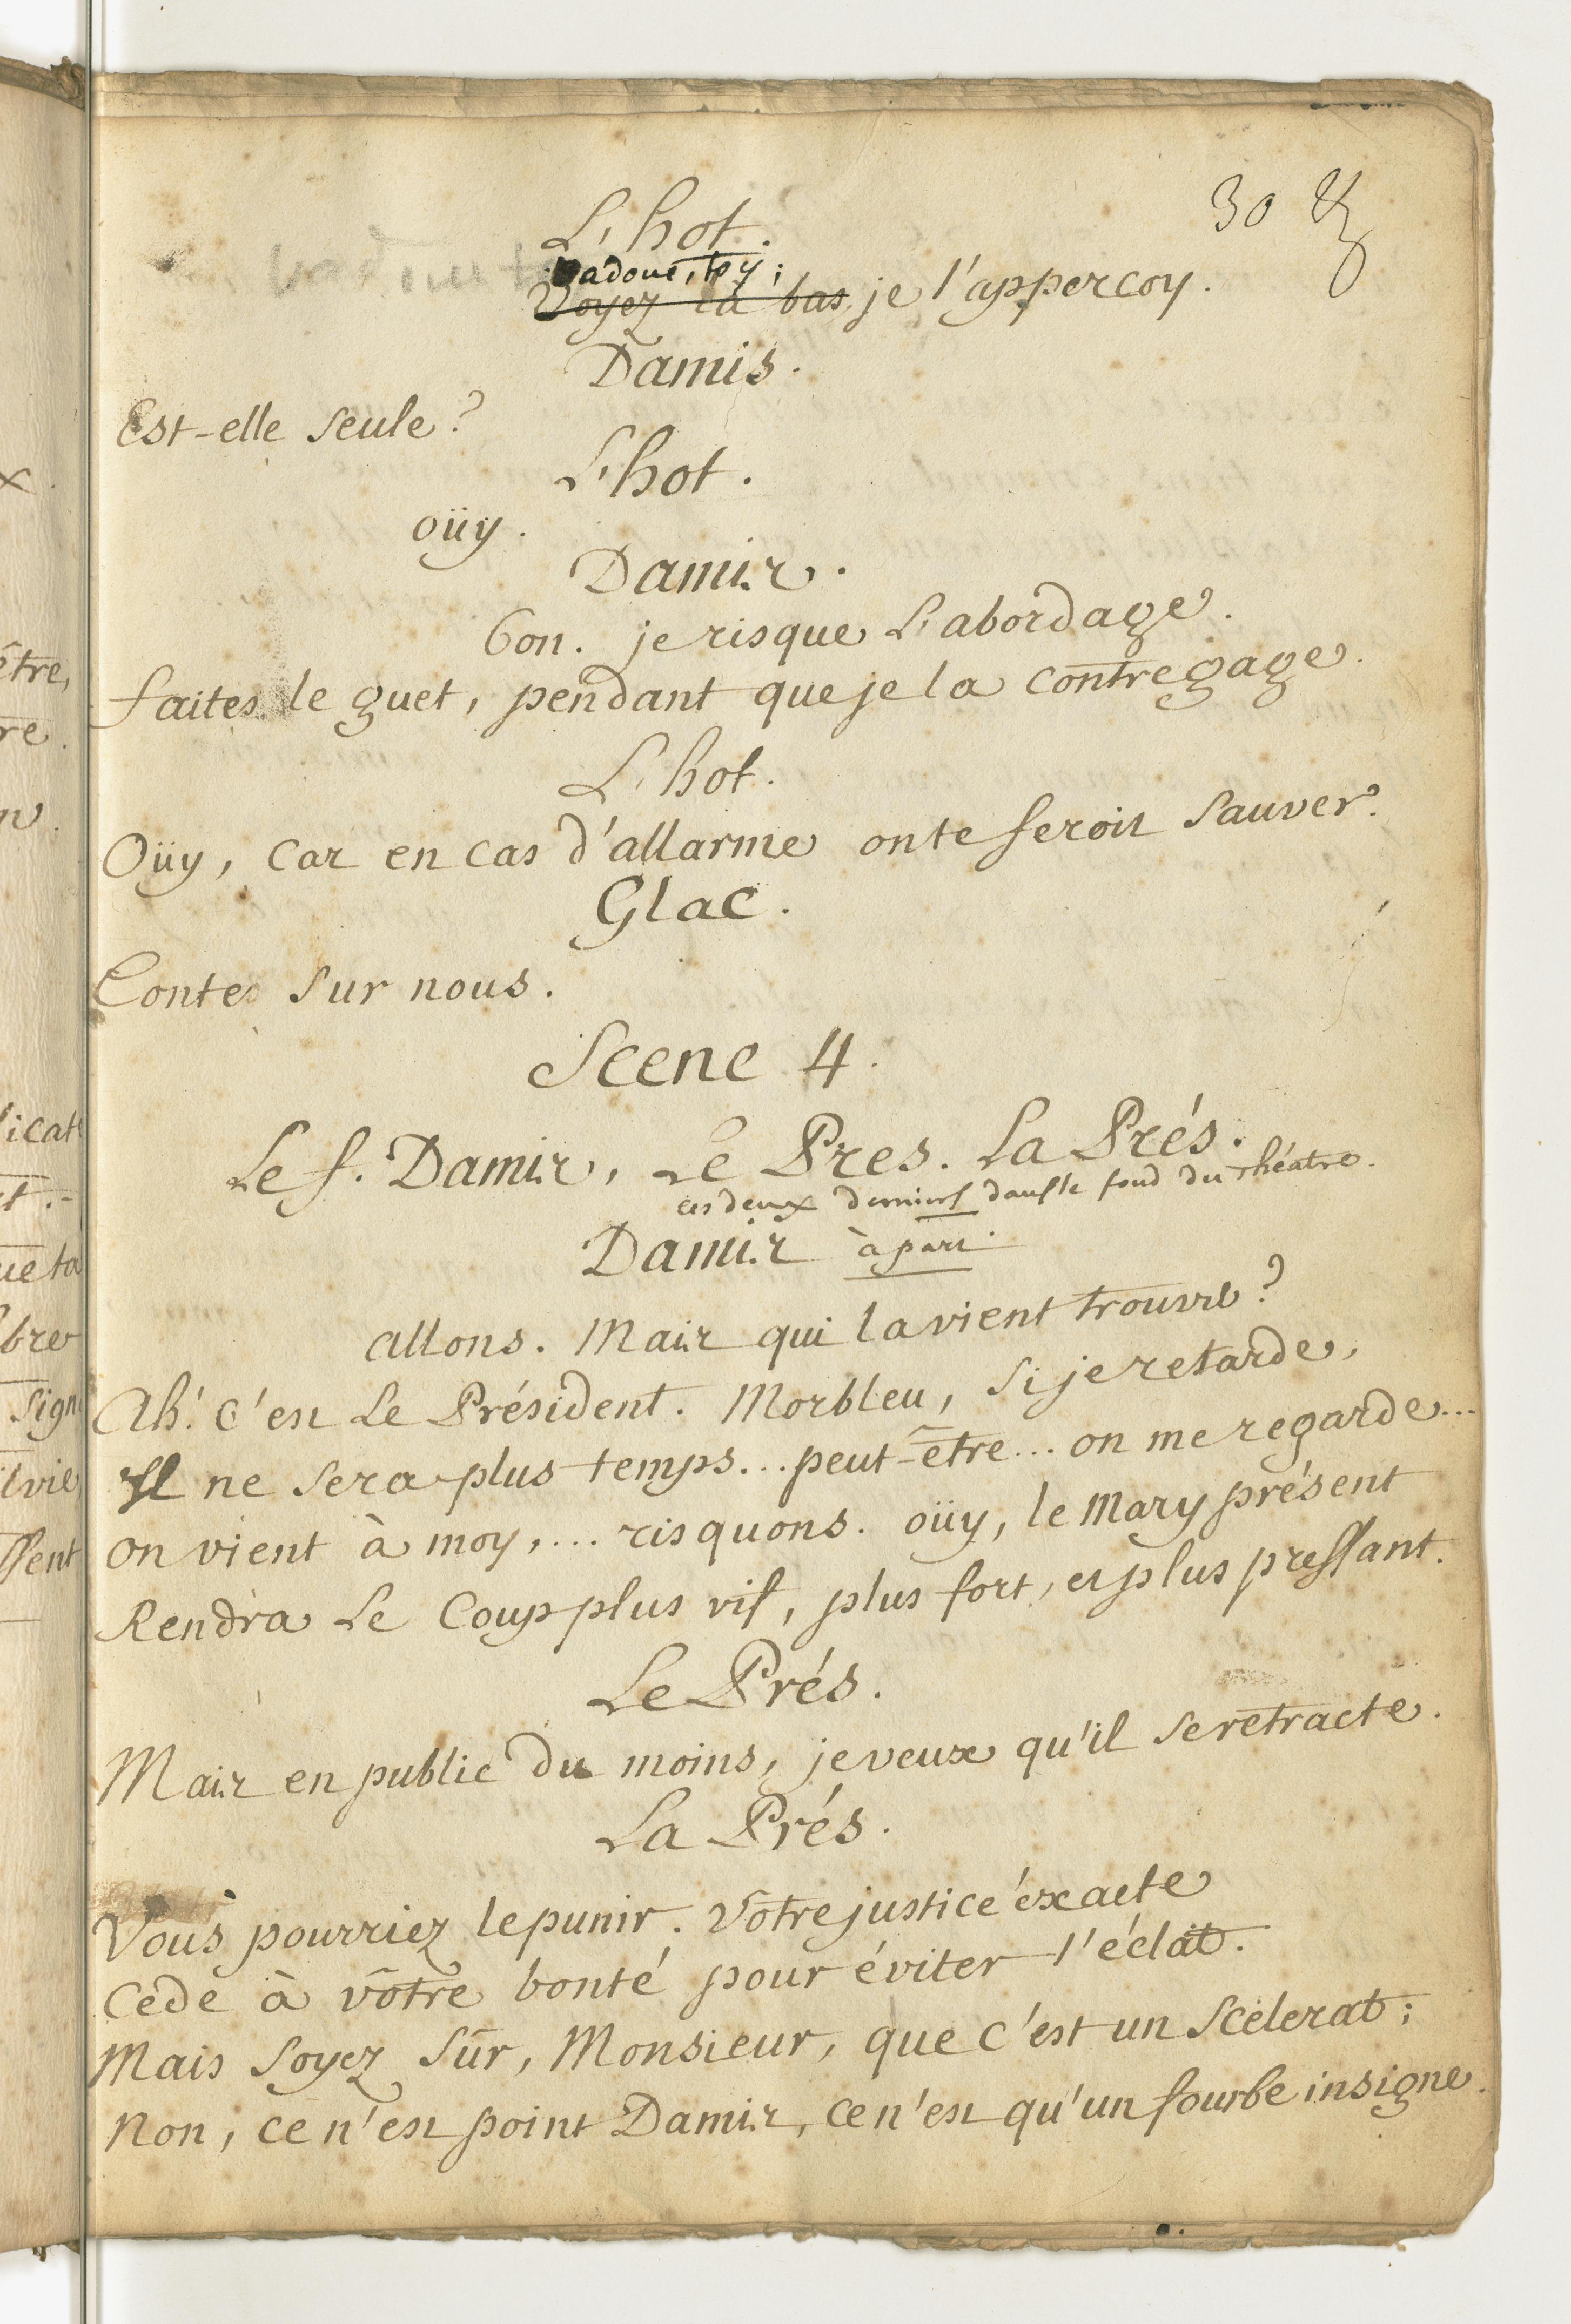 30
L'hot.
Padoue, toy;
Voyez là bas je l'appercoy.
Damis.
Est-elle seule?
L'hot.
oüy.
Damis.
bon. je risque L'abordage.
faites le guet, pendant que je la contregage.
L'hot.
Oüy, car en cas d'allarme on te feroit sauver.
Glac.
Contes sur nous.
Scene 4.
Le f. Damis, Le Pres. La Prés.
ces deux derniers dans le fond du théatre.
Damis à part.
allons. Mais qui la vient trouver?
Ah! c'est Le Président. Morbleu, si je retarde,
Il ne sera plus temps... peut-être... on me regarde...
on vient à moy,... risquons. oüy, le Mary présent
Rendra Le Coup plus vif, plus fort, et plus pressant.
Le Prés.
Mais en public du moins, je veux qu'il se retracte.
La Prés.
Vous pourriez le punir. Vôtre justice éxacte
Cede à vôtre bonté pour éviter l'éclat.
Mais soyez sûr, Monsieur, que c'est un scelerat;
Non, ce n'est point Damis, ce n'est qu'un fourbe insigne.